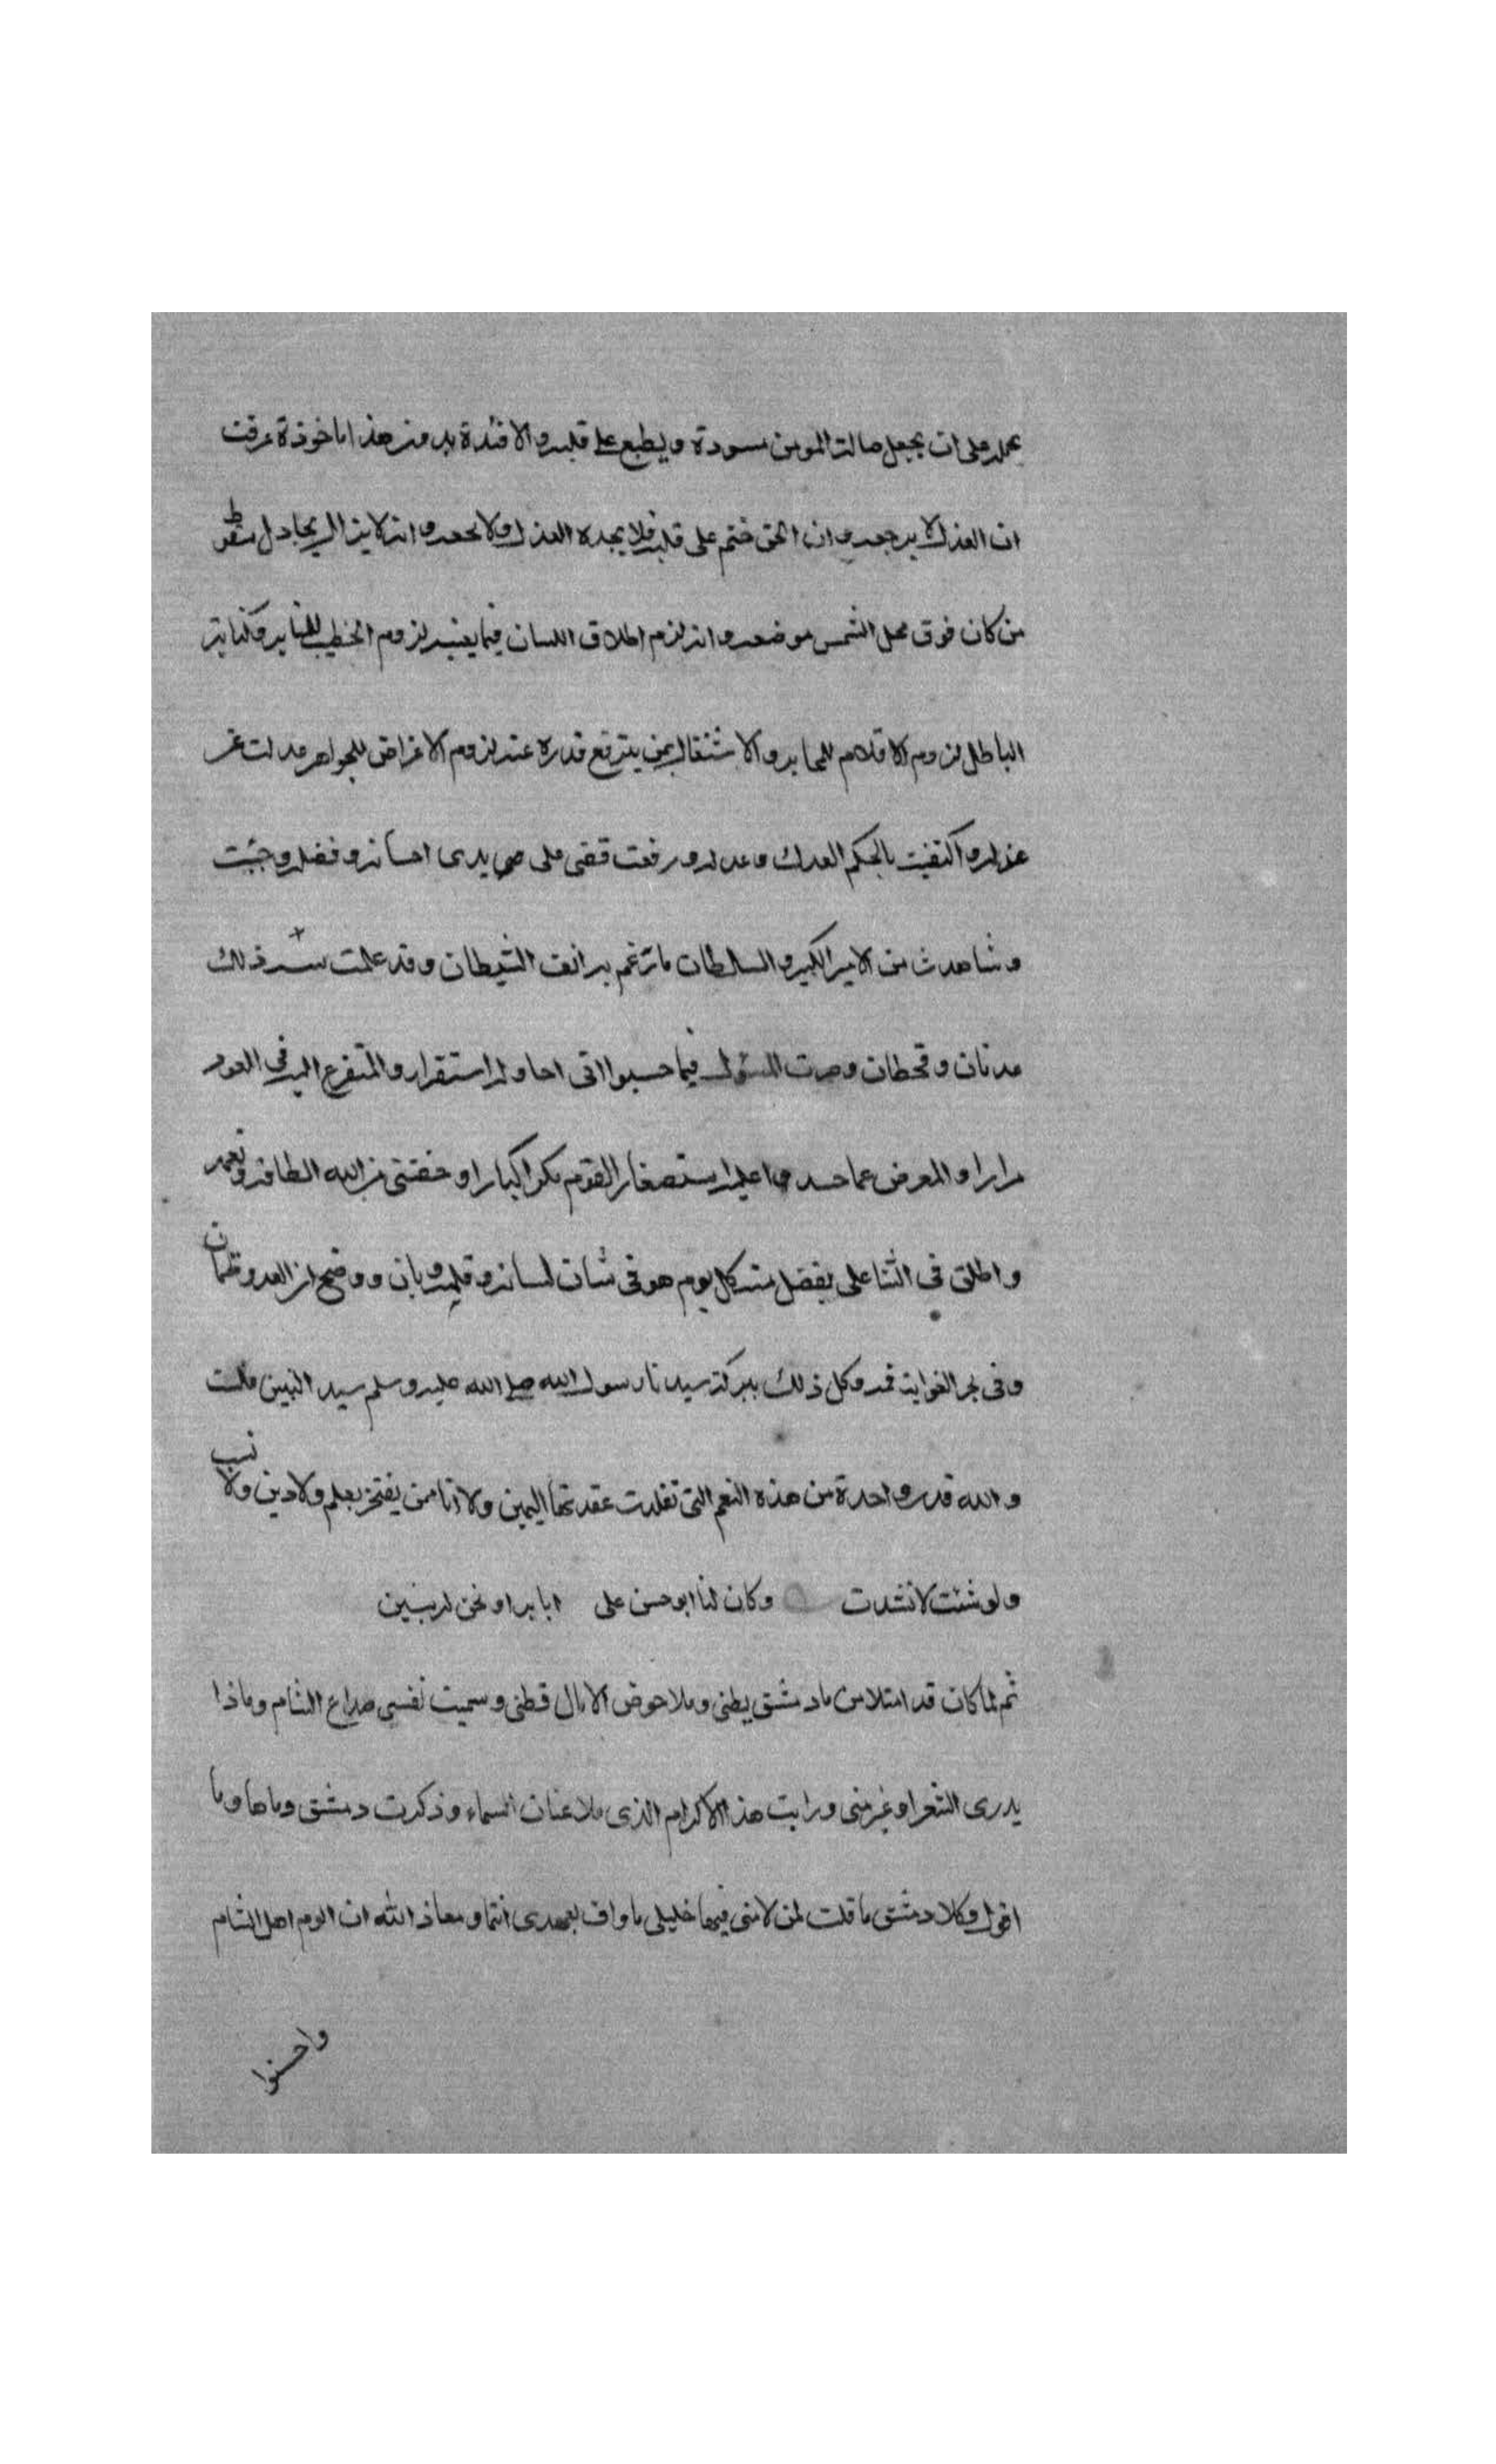 يحمله على ان يجعل حالة المومن مسودة ويطبع على قلبه والافئدة به ومنه هذا ماخوذة عرفت
ان العذل لا يرجعه وان الحق ختم على قلبه فلا يجده العذل ولا وانه لا يزال يجادل
من كان فوق محل الشمس موضعه وانه لزم اطلاق اللسان فيما يعنيه لزوم الخطيب للمنابر وكتابة
الباطل لزوم الاقلام للمحابر والاشتغال بمن يترفع قدره عنه لزوم الاغراض للجواهر عدلت عن
عذله واكتفيت بالحكم العدل وعدله ورفعت قصتي على يدى احسانه وفضله وجئت
وشاهدت من الامير الكبير والسلطان ما ترغم به انف الشيطان وقد علمت سر ذلك
عدنان وقحطان وصرت المسؤل فيما حسبوا انى احاوله استقرارا والمتفرع اليه فى العود
مرارا والمعرض عما حسد واعليه استصغار القوم مكرا كبارا وخفتنى من الله الطافه
واطلق فى الثنا على بفضل منه كل يوم هو فى شان لسانه وقلمه وبان ووضح ان العدو
وفى بحر الغواية وكل ذلك ببركة سيدنا رسول الله صلى الله عليه وسلم سيد النبيين ملت
والله قدر واحدة من هذه النعم التى تقلدت عقدتها اليمين ولا انا ممن يفتخر بعلم ولا دين ولا نسب
ولو شئت لانشدت وكان لنا ابو حسن على ابا برا ونحن له بنين
ثم لما كان قد امتلا من ماء دمشق بطنى وملا حوض الامال قطنى وسميت نفسى صداع الشام وماذا
يدرى الشعراء غير منى ورايت هذا الاكرام الذى ملا عنان السماء وذكرت دمشق وماها وما
اقول وكلا دمشق ما قلت لمن لامنى فيها خليلى ما واف بعهدى انتما ومعاذ الله ان الوم اهل الشام
واحسنوا